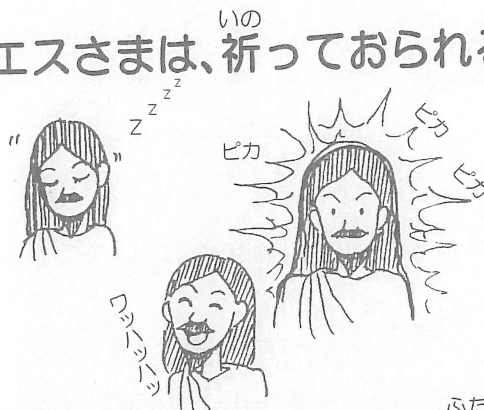 いの
エスさまは、祈っておられる
z z z z
ピカ
ピカ
ピカ
ワッハッハッ
ふた